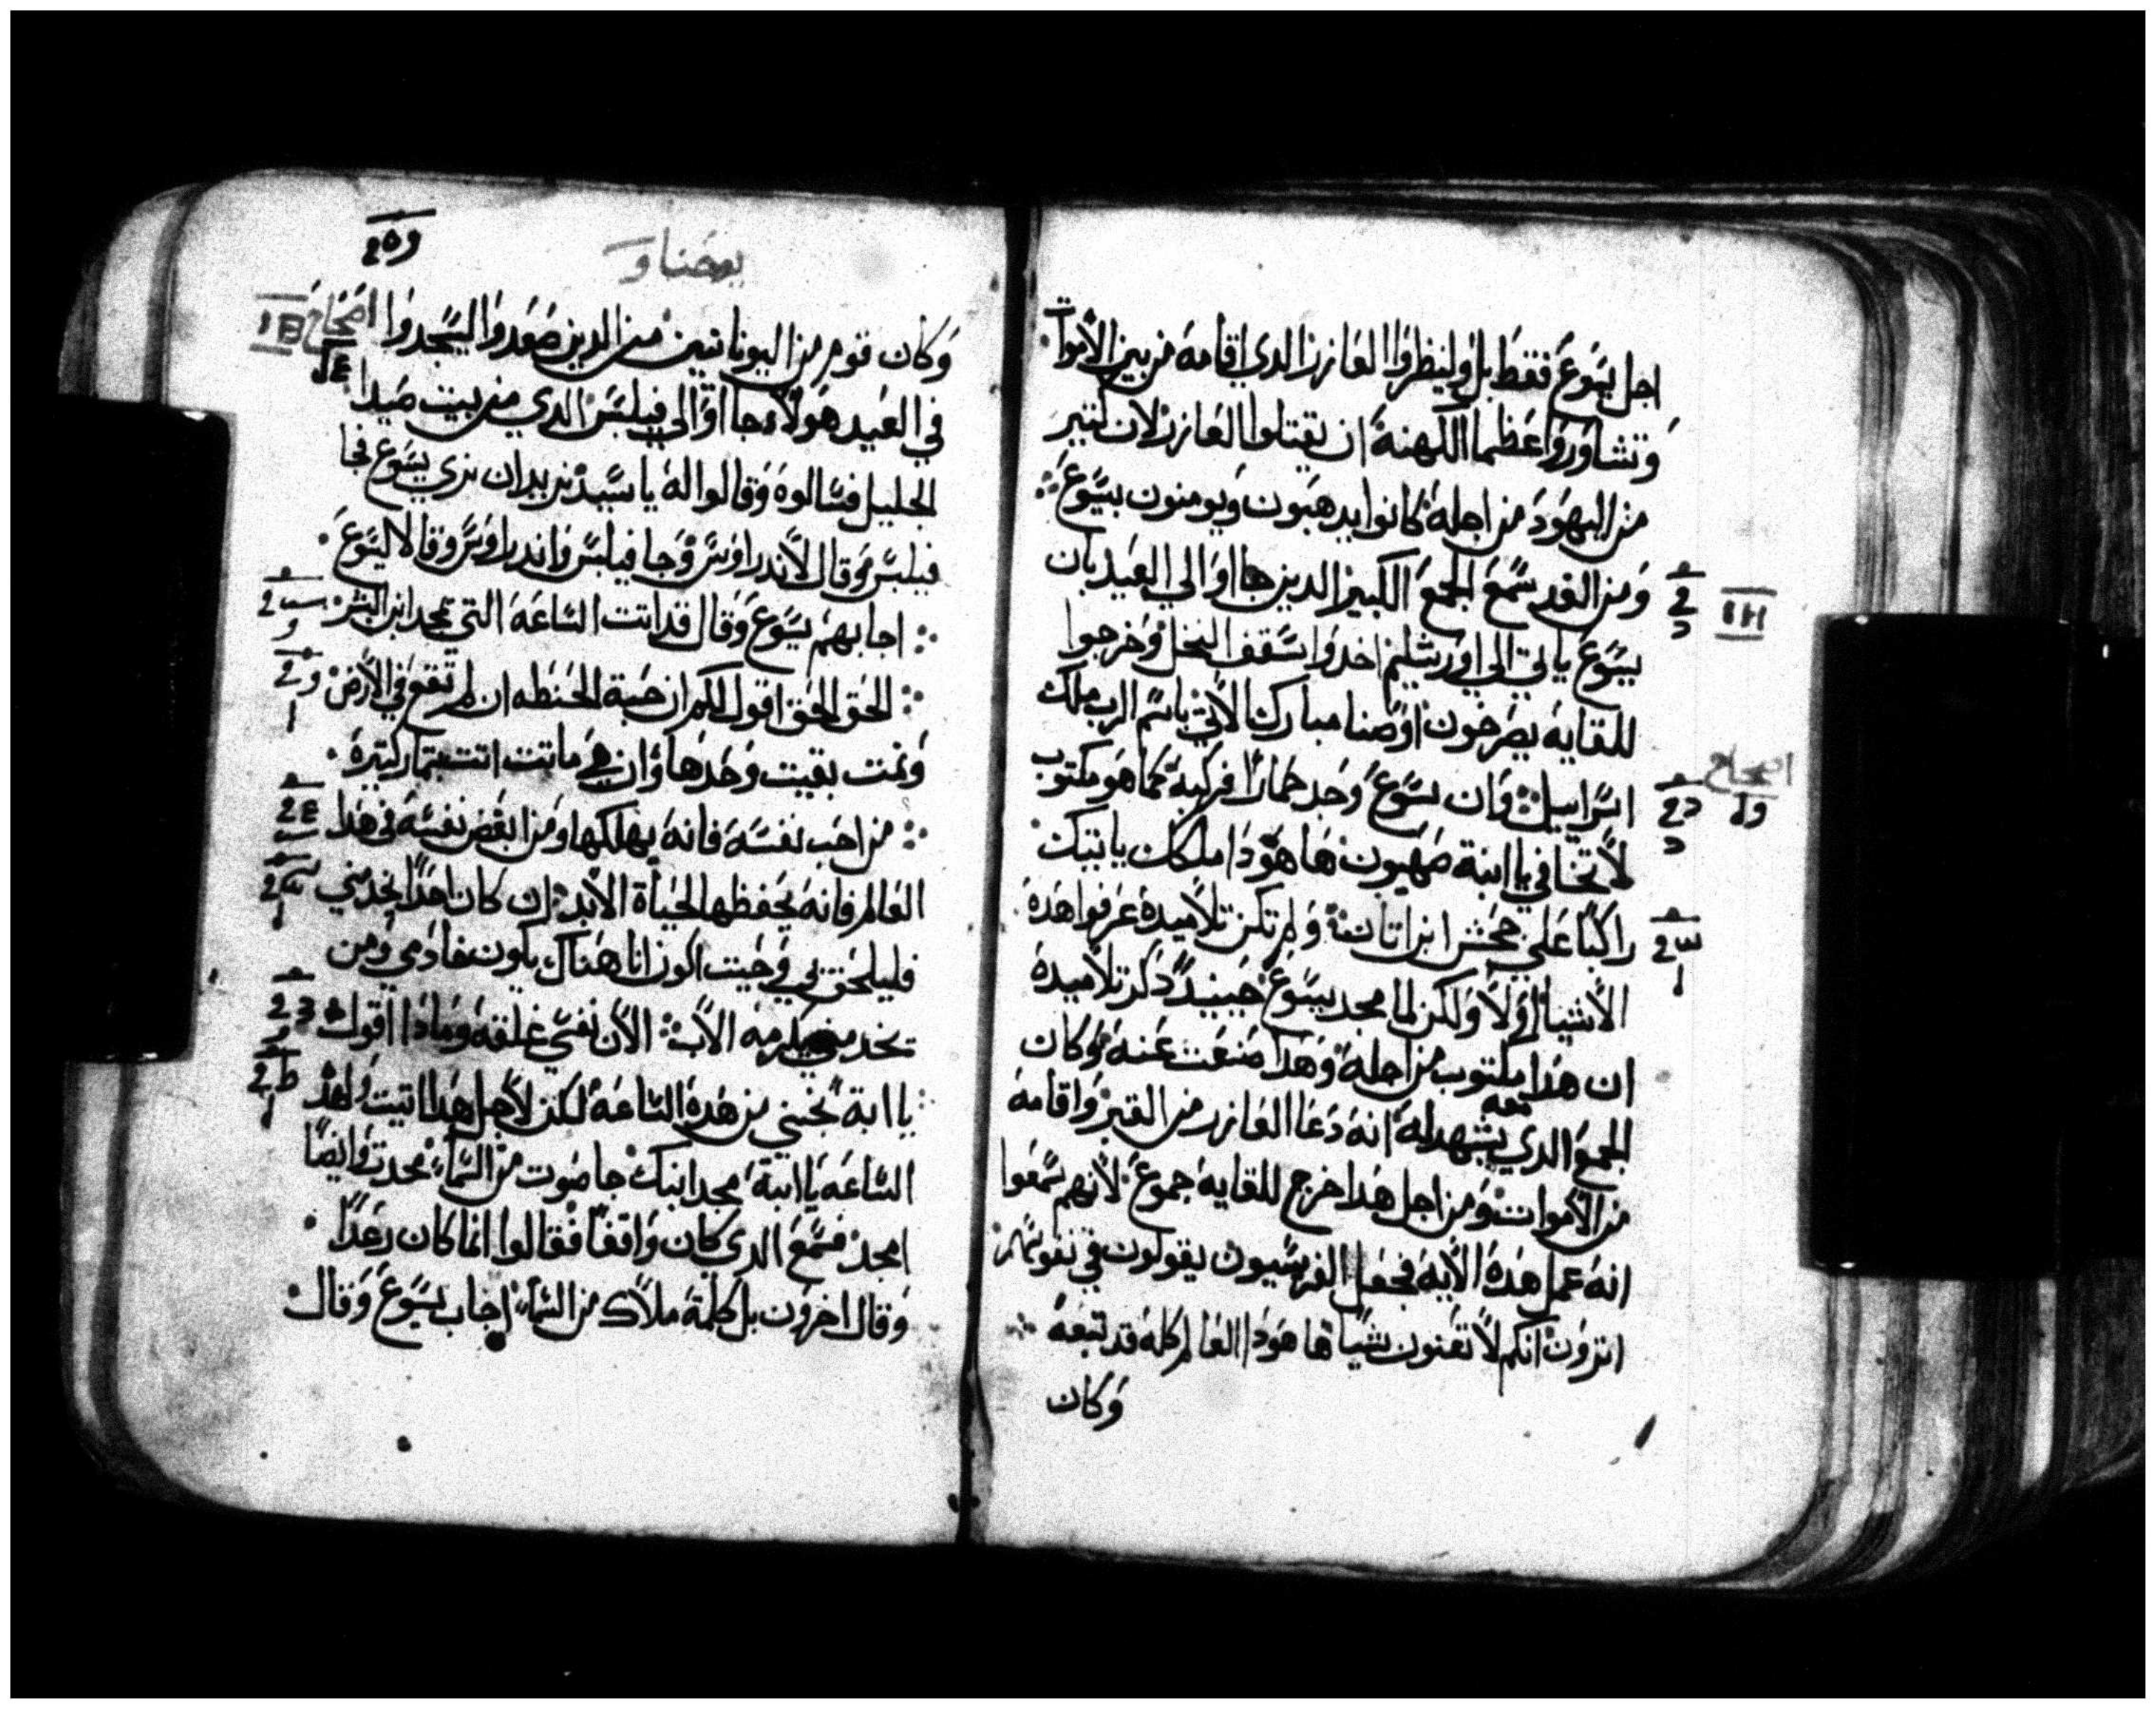 اجل يسوع فقط بل ولينظروا العازر الدي اقامه من بين الاموات
وتشاوروا عظما الكهنة ان يقتلوا العازر لان كتير
من اليهود من اجله كانوا يدهبون ويومنون بيسوع
ومن الغد سمع الجمع الكبير الدين جااوا الي العيد بان
يسوع ياتي الي اورشليم اخدوا سقف النخل وخرجوا
للقايه يصرخون اوصنا مبارك الاتي باسم الرب ملك
اسراييل وان يسوع وجد حمارا فركبه كما هو مكتوب
لا تخافي يا ابنة صهيون ها هودا ملكك ياتيك
راكبا علي جحش ابن اتان ولم تكن تلاميده عرفوا هده
الاشيا اولا ولكن لما مجد يسوع حينيد دكر تلاميده
ان هدا مكتوب من اجله وهدا صنعت عنه وكان
الجمع الدي معه يشهد له انه دعا العازر من القبر واقامه
من الاموات ومن اجل هدا خرج للقايه جموع لانهم سمعوا
انه عمل هده الايه فجعل الفريسيون يقولون في نفوسهم
اترون انكم لا تغنون شيا ها هودا العالم كله قد تبعه
وكان
يوحنا
وكان قوم من اليونانيين من الدين صعدوا ليسجدوا
اصحاح
في العيد هولاء جااوا الي فيلبس الدي من بيت صيدا
الجليل فسالوه وقالوا له يا سيد نريد ان نري يسوع فجا
فيلبس وقال لاندراوس وجا فيلبس واندراوس وقالا ليسوع
اجابهم يسوع وقال قد اتت الساعة التي يمجد ابن البشر
الحق الحق اقول لكم ان حبة الحنطه ان لم تقع في الارض
وتمت بقيت وحدها وان هي ماتت اتت بتمار كتيرة
من احب نفسه فانه يهلكها ومن ابغض نفسه في هدا
العالم فانه يحفظها لحياة الابد ان كان احدا يخدمني
فليلحق بي وحيت اكون انا هناك يكون خادمي ومن
يخدمني يكرمه الاب الان نفسي قلقه ومادا اقول
يا ابة نجني من هده الساعة لكن لاجل هدا اتيت لهده
الساعه يا ابة مجد ابنك جا صوت من السماء مجدت وايضا
امجد فسمع الدي كان واقفا فقالوا انما كان رعدا
وقال اخرون بل كلمة ملاك من السماء اجاب يسوع وقال
اصحاح